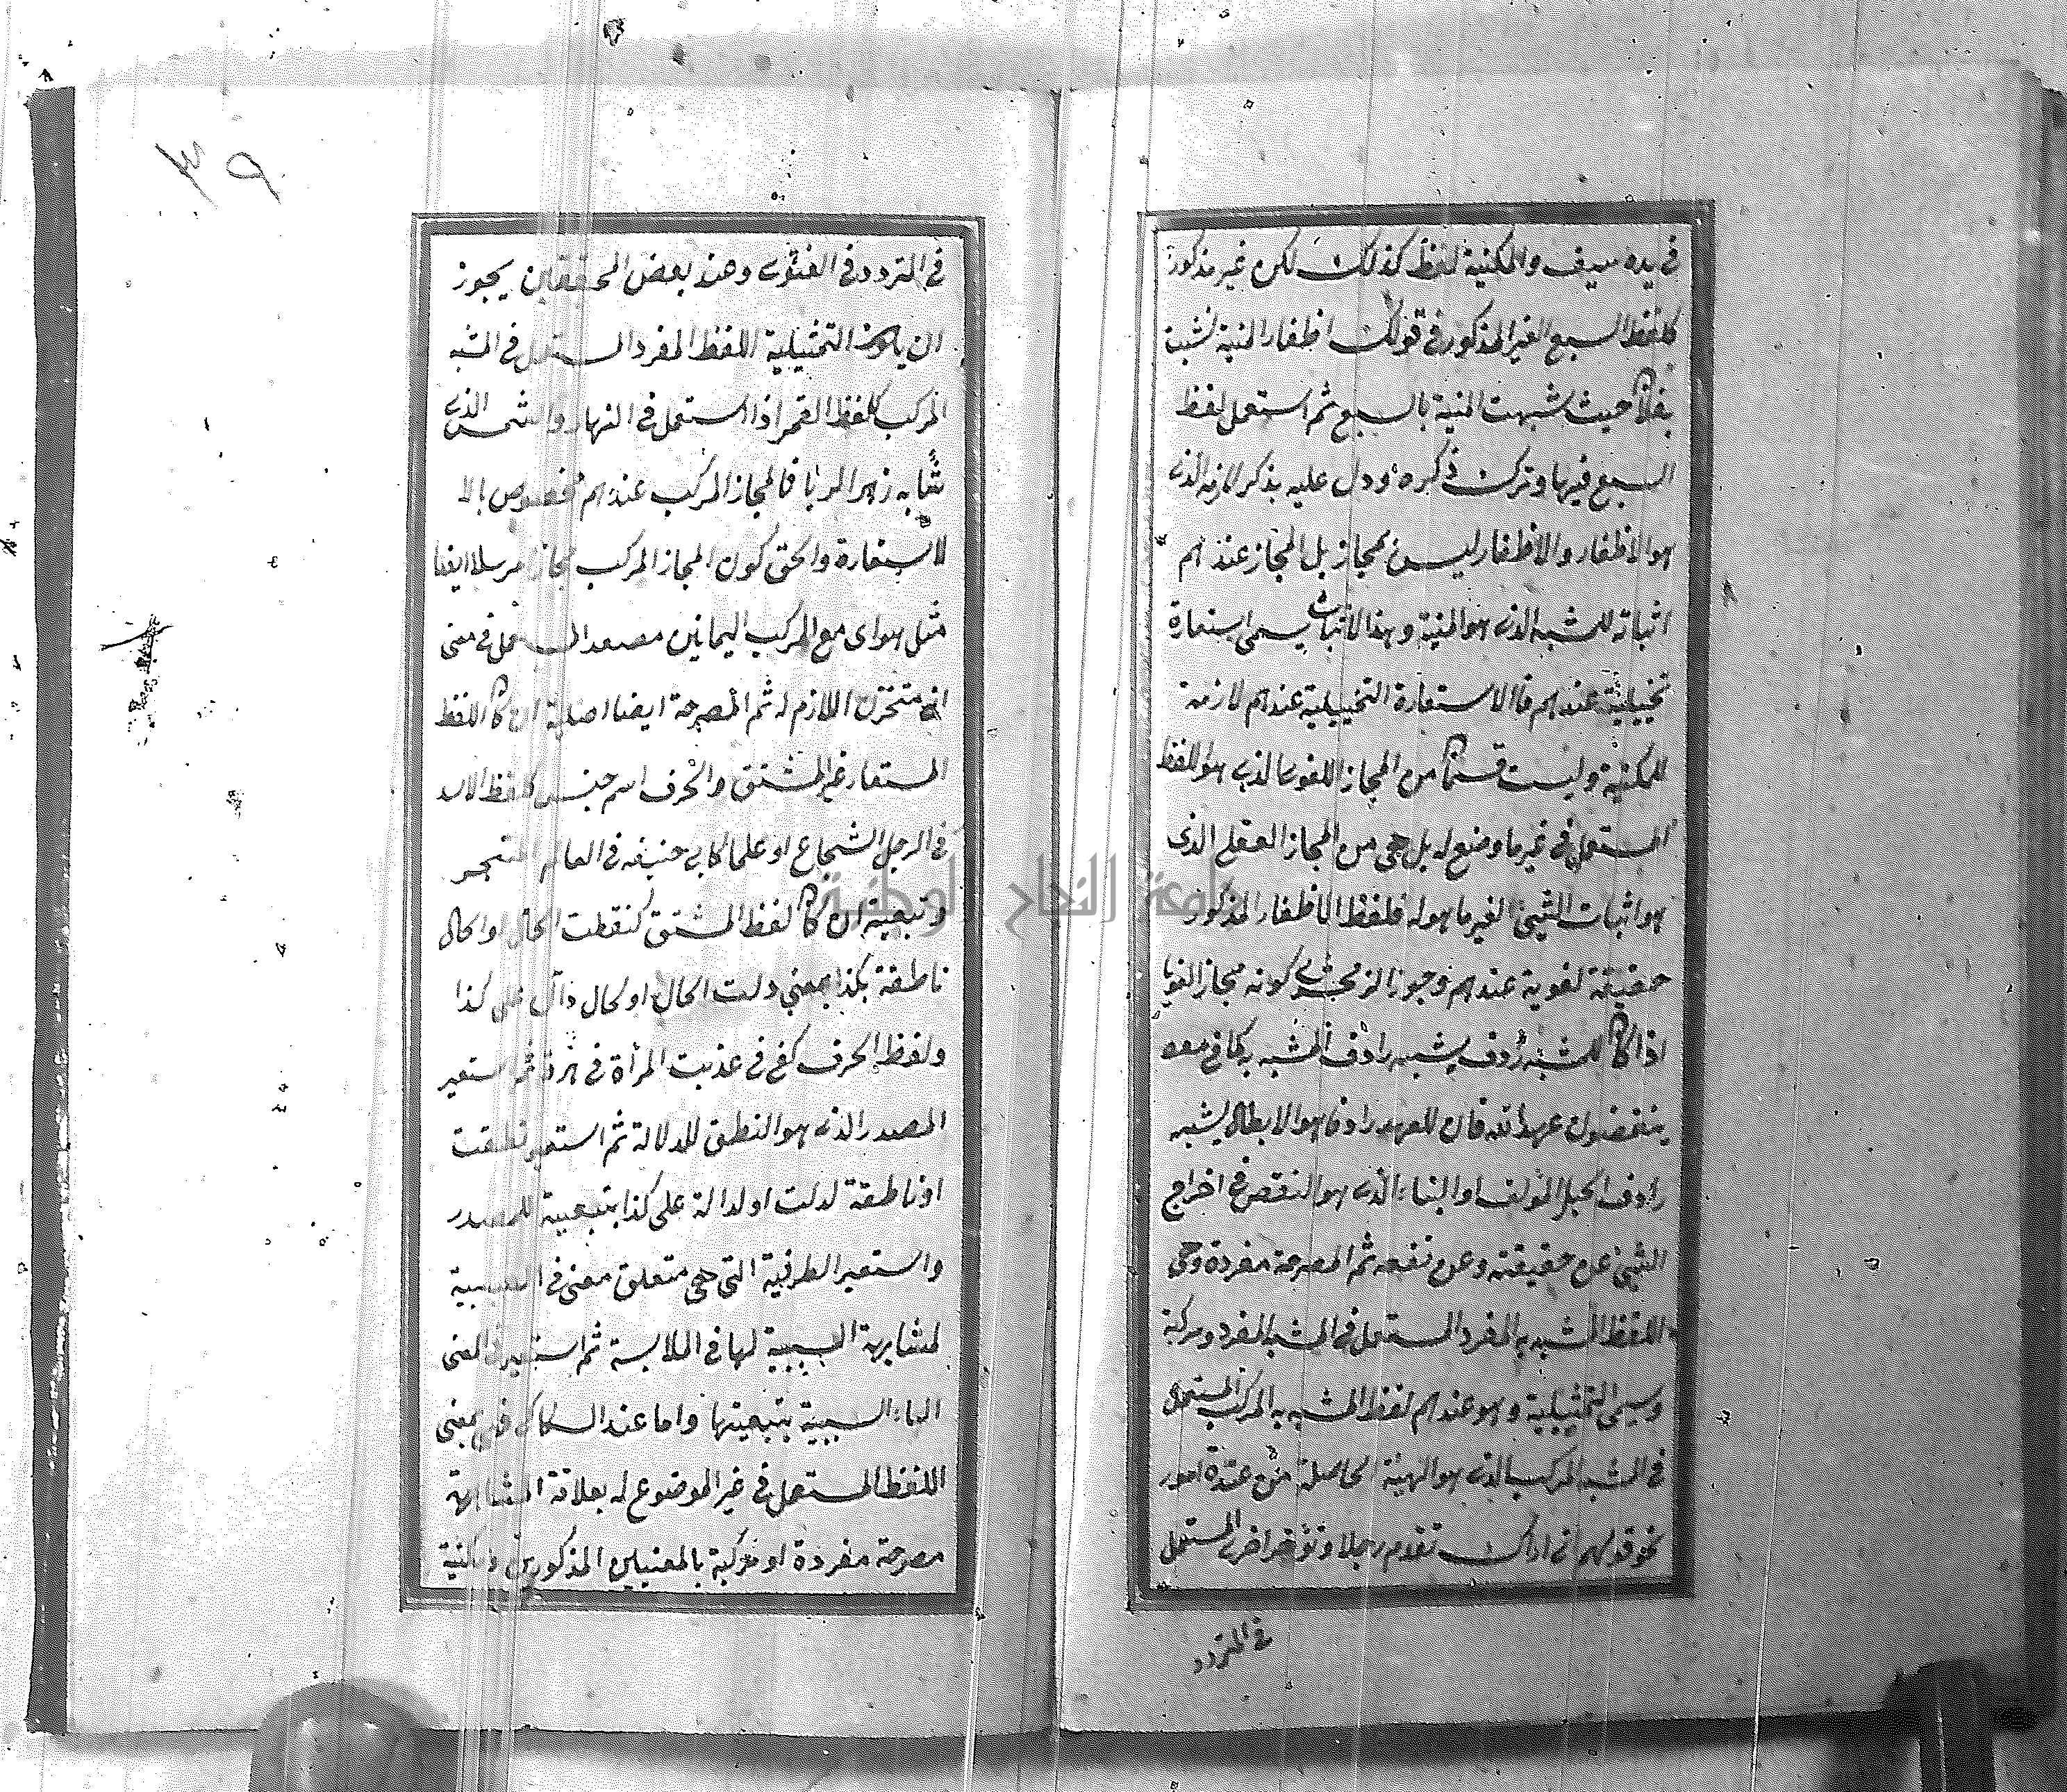 في يده سيف والمكنية لفظ كذلك لكن غير مذكور
كلفظ السبع الغير المذكور في قولك اظفار المنية نشبت
بفلان حيث شبهت المنية بالسبع ثم استعمل لفظ
السبع فيها وترك ذكره ودل عليه بذكر لازمه الذى
هو الاظفار والاظفار ليس بمجاز بل المجاز عندهم
اثباته للمشبه الذى هو المنية وهذا الاثبات يسمى استعارة
تخييلية عندهم فالاستعارة التخييلية عندهم لازمة
للمكنية وليست قسما من المجاز اللغوى الذى هو اللفظ
المستعمل في غير ما وضع له بل هى من المجاز العقلى الذى
هو اثبات الشيئ لغير ما هو له فلفظ الاظفار المذكور
حقيقة لغوية عندهم وجوز الزمخشرى كونه مجازا لغويا
اذا كان للمشبه ردف يشبه رادف المشبه به كما في
ينقضون عهد الله فان للعهد رادفا هو الابطال يشبه
رادف الحبل المؤلف او البناء الذى هو النقض في اخراج
الشيئ عن حقيقته وعن نفعه ثم المصرحة مفردة وهى
اللفظ المشبه به المفرد المستعمل في المشبه المفرد ومركبة
وتسمى التمثيلية وهو عندهم لفظ المشبه به المركب المستعمل
في المشبه المركب الذى هو الهيئة الحاصلة من عدة امور
نحو قولهم انى اراك تقدم رجلا وتؤخر اخرى المستعمل
في المتردد
٣٩
في المتردد في الفتوى وعند بعض المحققين يجوز
ان يكون التمثيلية اللفظ المفرد المستعمل في المشبه
المركب كلفظ القمر اذا استعمل في النهار والشمس الذى
شابه زهر الربا فالمجاز المركب عندهم مخصوص بالا
لاستعارة والحق كون المجاز المركب مجازا مرسلا ايضا
مثل هواى مع الركب اليمانين مصعد المستعمل في معنى
انه متحزن اللازم له ثم المصرحة ايضا اصلية ان كان اللفظ
المستعار غير المشتق والحرف اسم جنس كلفظ الاسد
في الرجل الشجاع او علما كابى حنيفه في العالم المتبحر
وتبعية ان كان لفظ المشتق كنطقت الحال او الحال
ناطقة بكذا بمعنى دلت الحال او الحال دال على كذا
ولفظ الحرف كفى في عذبت المرأة في هرة ثم استعير
المصدر الذى هو النطق للدلالة ثم استعير نطقت
او ناطقة لدلت او لدالة على كذا بتبعية المصدر
واستعير الظرفية التى هى متعلق معنى في السببية
لمشابهة السببية لها في الملابسة ثم استعير في لمعنى
الباء السببية بتبعيتها واما عند السكاكى فهى بمعنى
اللفظ المستعمل في غير الموضوع له بعلاقة المشابهة
مصرحة مفردة او مركبة بالمعنيين المذكورين ومكنية
جامعة النجاح الوطنية